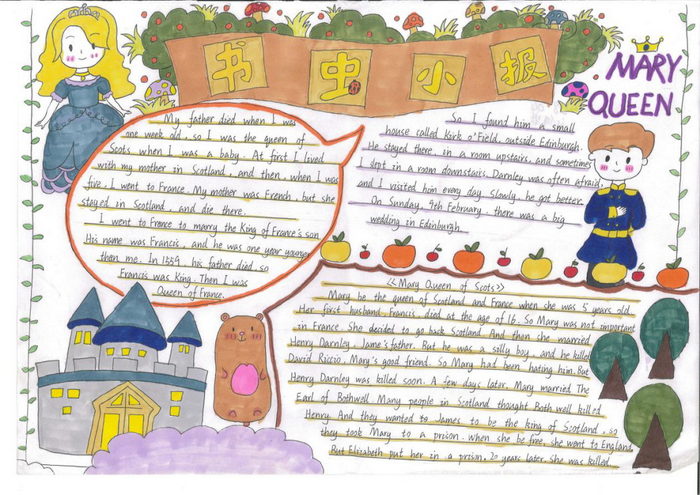 书虫小报
MARY
QUEEN
My father died when I was
one week old, so I was the queen of
Scots when I was a baby. At first I lived
with my mother in Scotland, and then, when I was
five, I went to France. My mother was French, but she
stayed in Scotland, and die there.
I went to France to marry the King of France's son.
His name was Francis, and he was one year younger
than me. In 1559, his father died, so
Francis was King. Then I was
Queen of France.
So I found him a small
house called Kirk o'Field, outside Edinburgh.
He stayed there, in a room upstairs, and sometimes
I slept in a room downstairs. Darnley was often afraid,
and I visited him every day. Slowly, he got better.
On Sunday, 9th February, there was a big
wedding in Edinburgh.
<<Mary Queen of Scots>>
Mary be the queen of Scotland and France when she was 5 years old.
Her first husband, Francis, died at the age of 16. So Mary was not important
in France. She decided to go back Scotland. And then she married
Henry Darnley, Jame's father. But he was a silly boy, and he killed
David Riccio, Mary's good friend. So Mary had been hating him. But
Henry Darnley was killed soon. A few days later, Mary married The
Earl of Bothwell. Many people in Scotland thought Bothwell killed
Henry. And they wanted to James to be the king of Scotland, so
they took Mary to a prison. When she be free, she went to England.
But Elizabeth put her in a prison. 20 years later, she was killed...